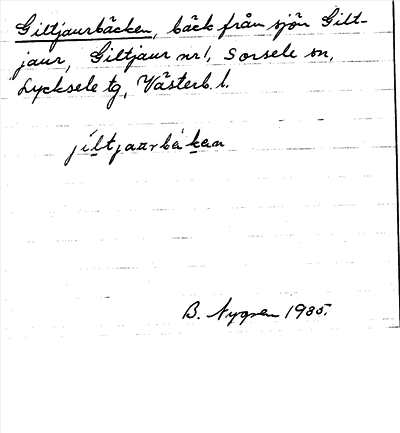 Giltjaurbäcken, bäck från sjön Gilt-
jaur, Giltjaur nr 1, Sorsele sn,
Lycksele tg, Västerb. l.
jíltjaurbäkən
B. Nygren 1935.